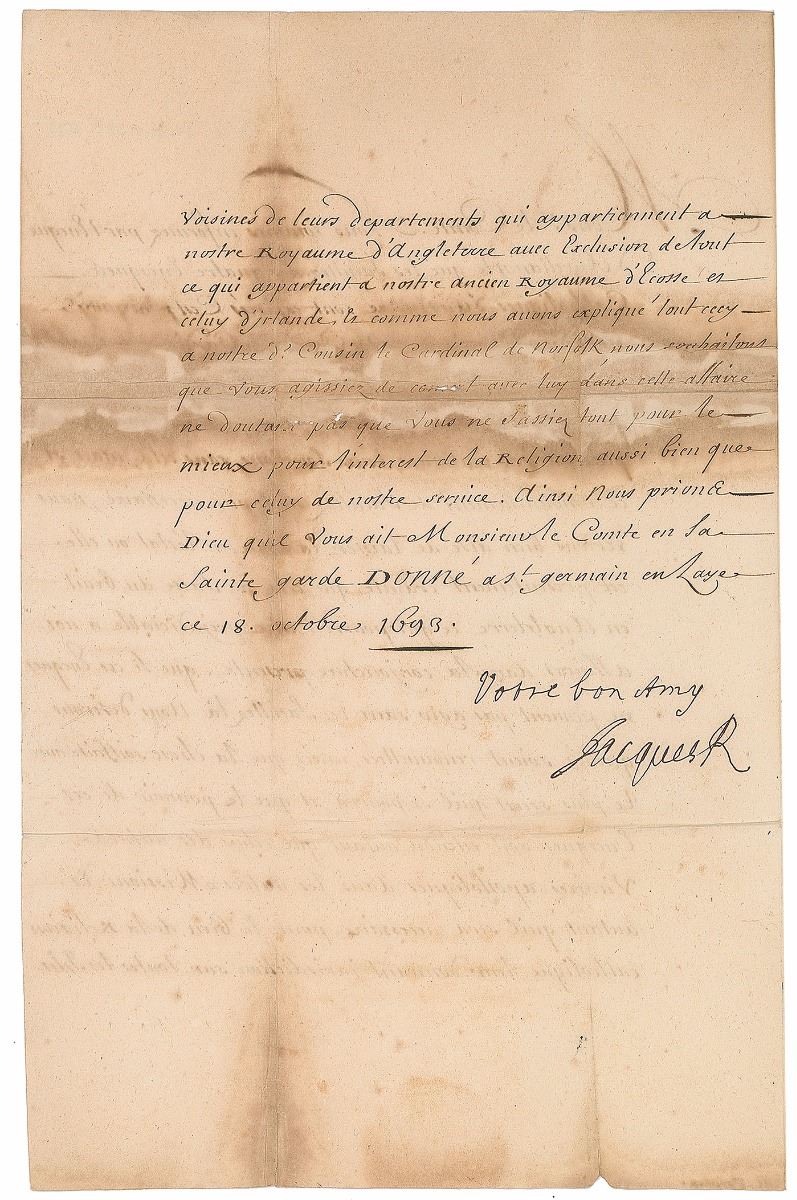 Voisines de leurs departements qui appartiennent a
nostre Royaume d'Angleterre avec Exclusion de tout
ce qui appartient a nostre ancien Royaume d'Ecosse et
celuy d'jrlande, Et comme nous auons expliqué tout cecy
a nostre dt. Cousin le Cardinal de Norfolk nous souhaitons
que vous agissiez de avec luy dans cette affaire
ne doutant pas que vous ne fassiez tout pour le
mieux pour l'interest de la Religion aussi bien que
pour celuy de nostre seruice. Ainsi Nous prions
Dieu quil vous ait Monsieur le Comte en Sa
Sainte garde Donné a St. germain en Laye
ce 18. octobre 1693.
Votre bon Amy
Jacques R